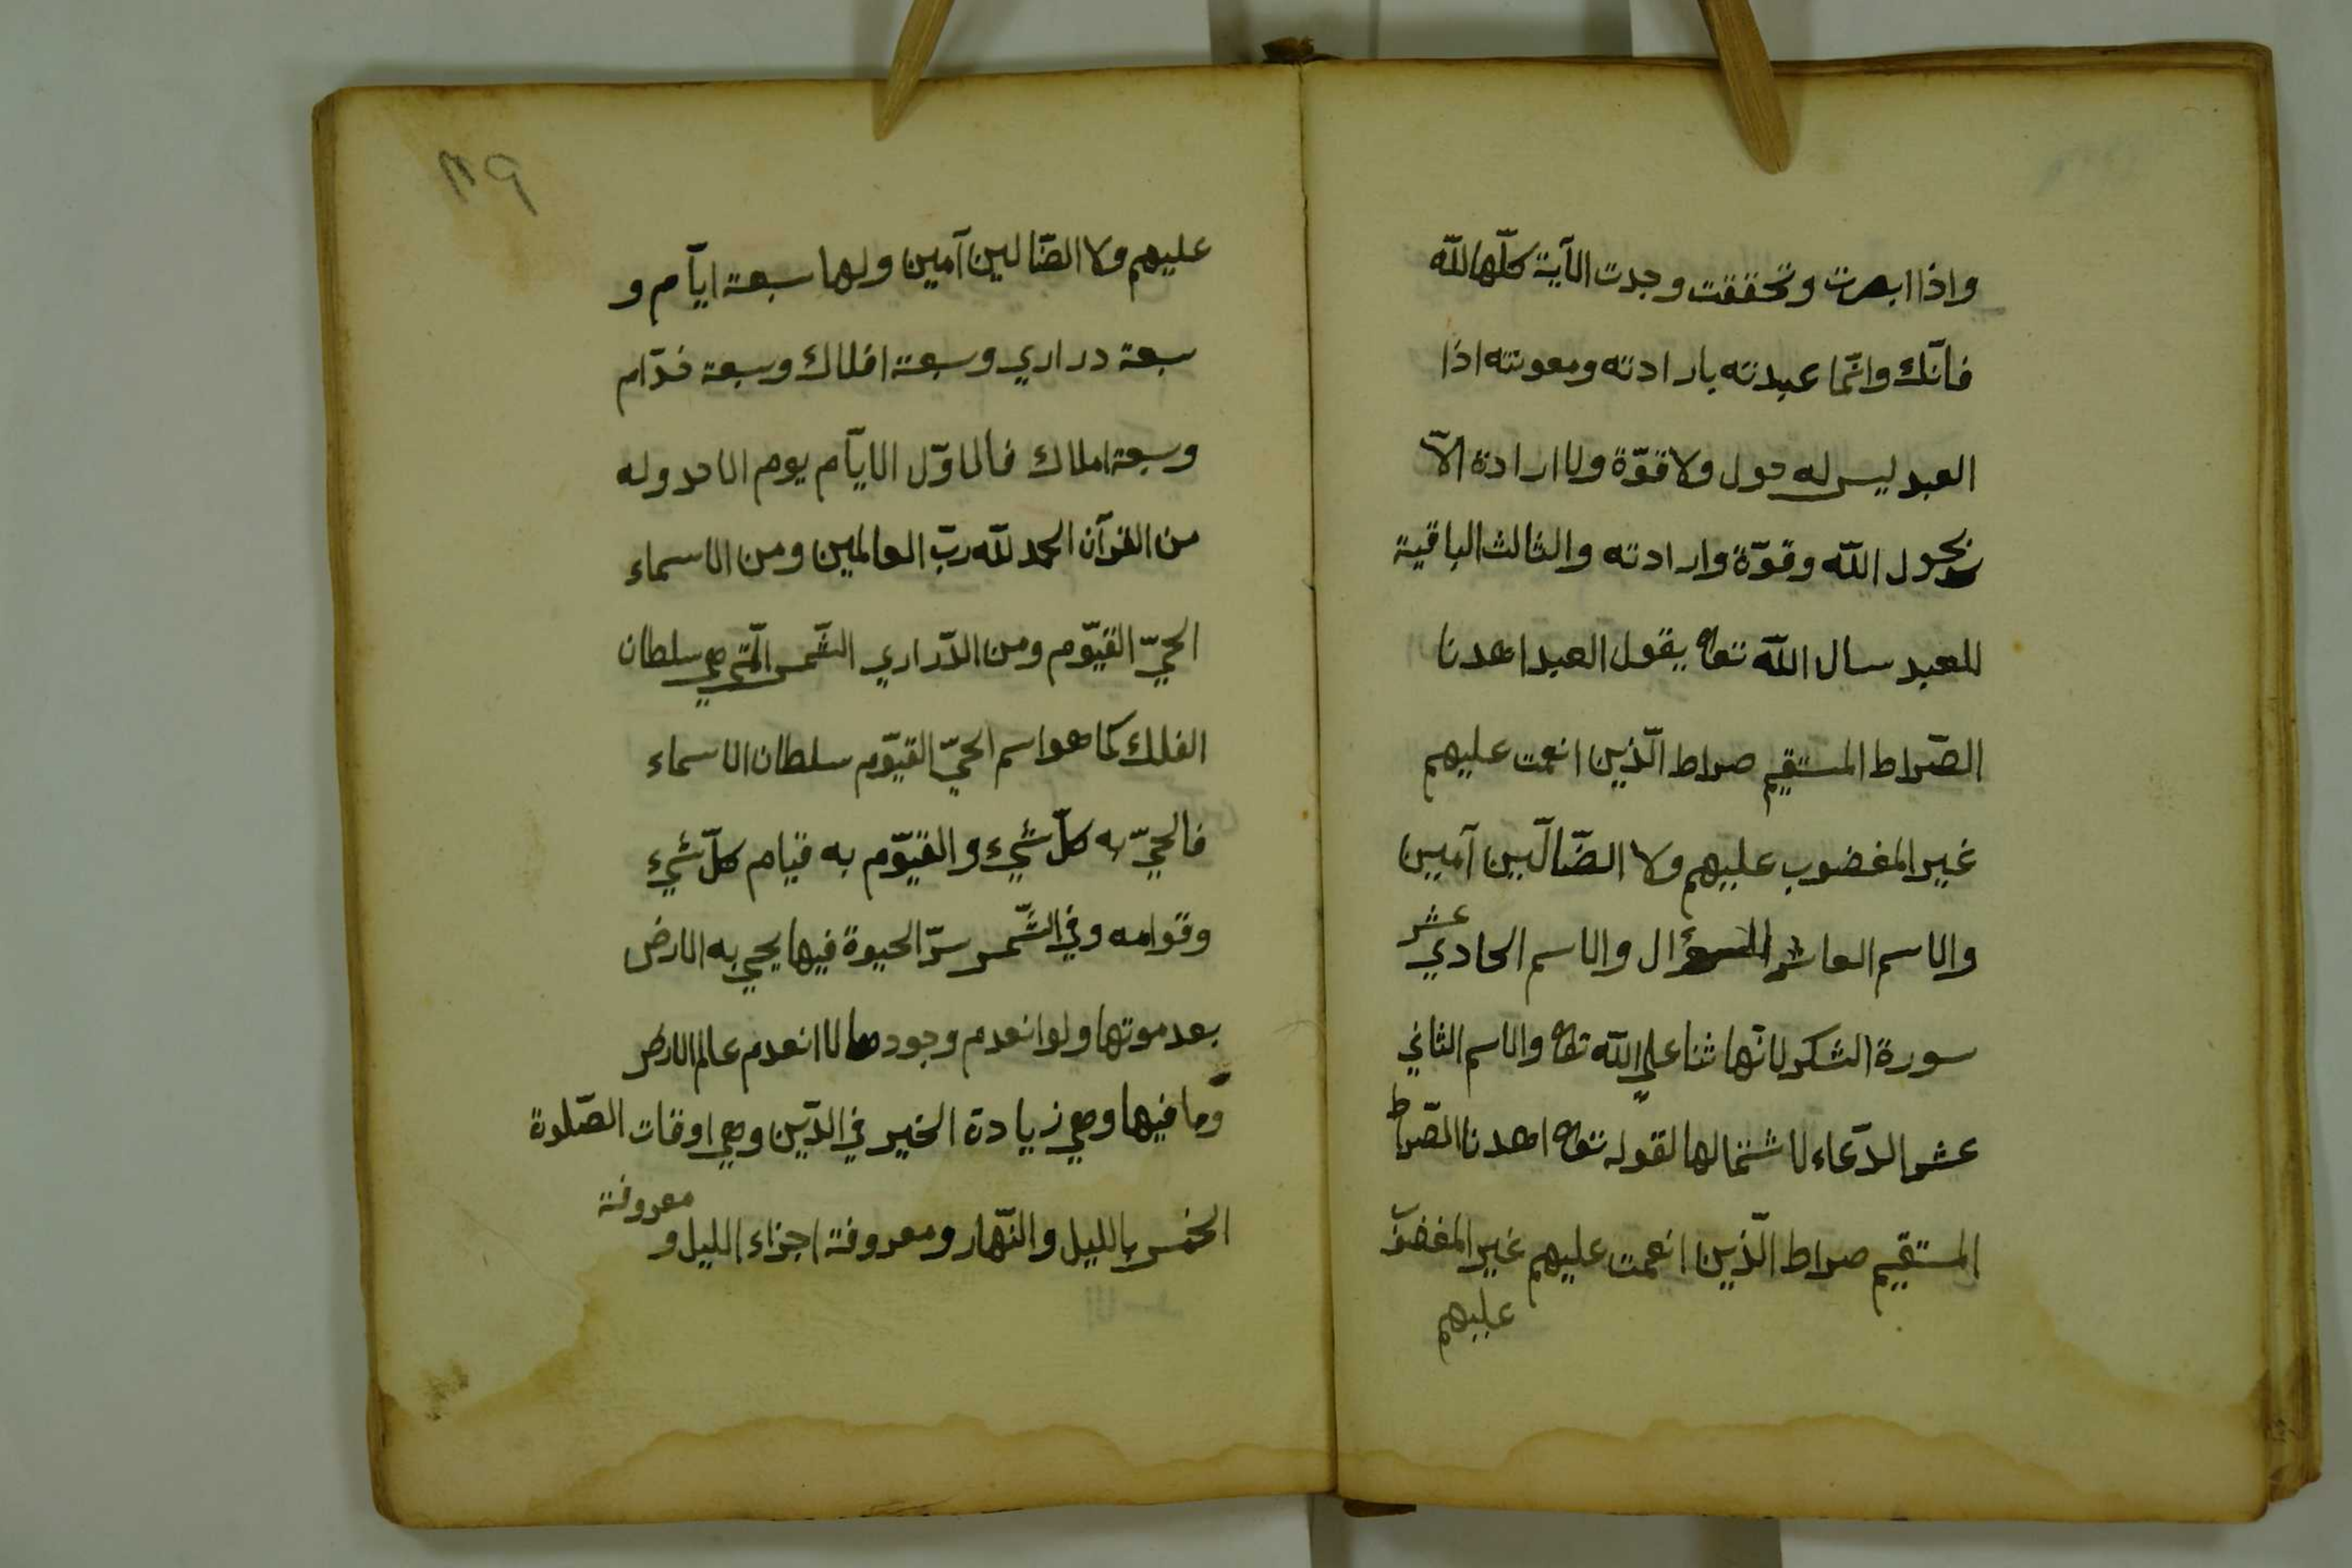 واذا ابصرت وتحققت وجدت الآية كلّها لله
فانّك وانّما عبدته بارادته ومعونته اذا
العبد ليس له حول ولا قوّة ولا ارادة الّا
بحول الله وقوّة وارادته والثالث الباقية
للعبد سال الله تعالى يقول العبد اهدنا
الصّراط المستقيم صراط الّذين انعمت عليهم
غير المغضوب عليهم ولا الضّالّين آمين
والاسم العاشر السؤال والاسم الحادي عشر
سورة الشكر لانّها ثنا على الله تعالى والاسم الثاني
عشر الدّعاء لاشتمالها لقوله تعالى اهدنا الصّراط
المستقيم صراط الّذين انعمت عليهم غير المغضوب
عليهم
٣٩
عليهم ولا الضّالين آمين ولها سبعة ايّام و
سبعة دراري وسبعة افلاك وسبعة خدّام
وسبعة املاك فالاوّل الايّام يوم الاحد وله
من القرآن الحمد لله ربّ العالمين ومن الاسماء
الحيّ القيّوم ومن الدّراري الشّمس الّتي هي سلطان
الفلك كما هو اسم الحيّ القيّوم سلطان الاسماء
فالحيّ به كلّ شيء والقيّوم به قيام كلّ شيء
وقوامه وفي الشّمس سرّ الحيوة فيها يحيي به الارض
بعد موتها ولو انعدم وجودها لانعدم عالم الارض
وما فيها وهي زيادة الخير في الدّين وهي اوقات الصّلوة
الخمس بالليل والنّهار ومعروفة اجزاء الليل و
معروفة